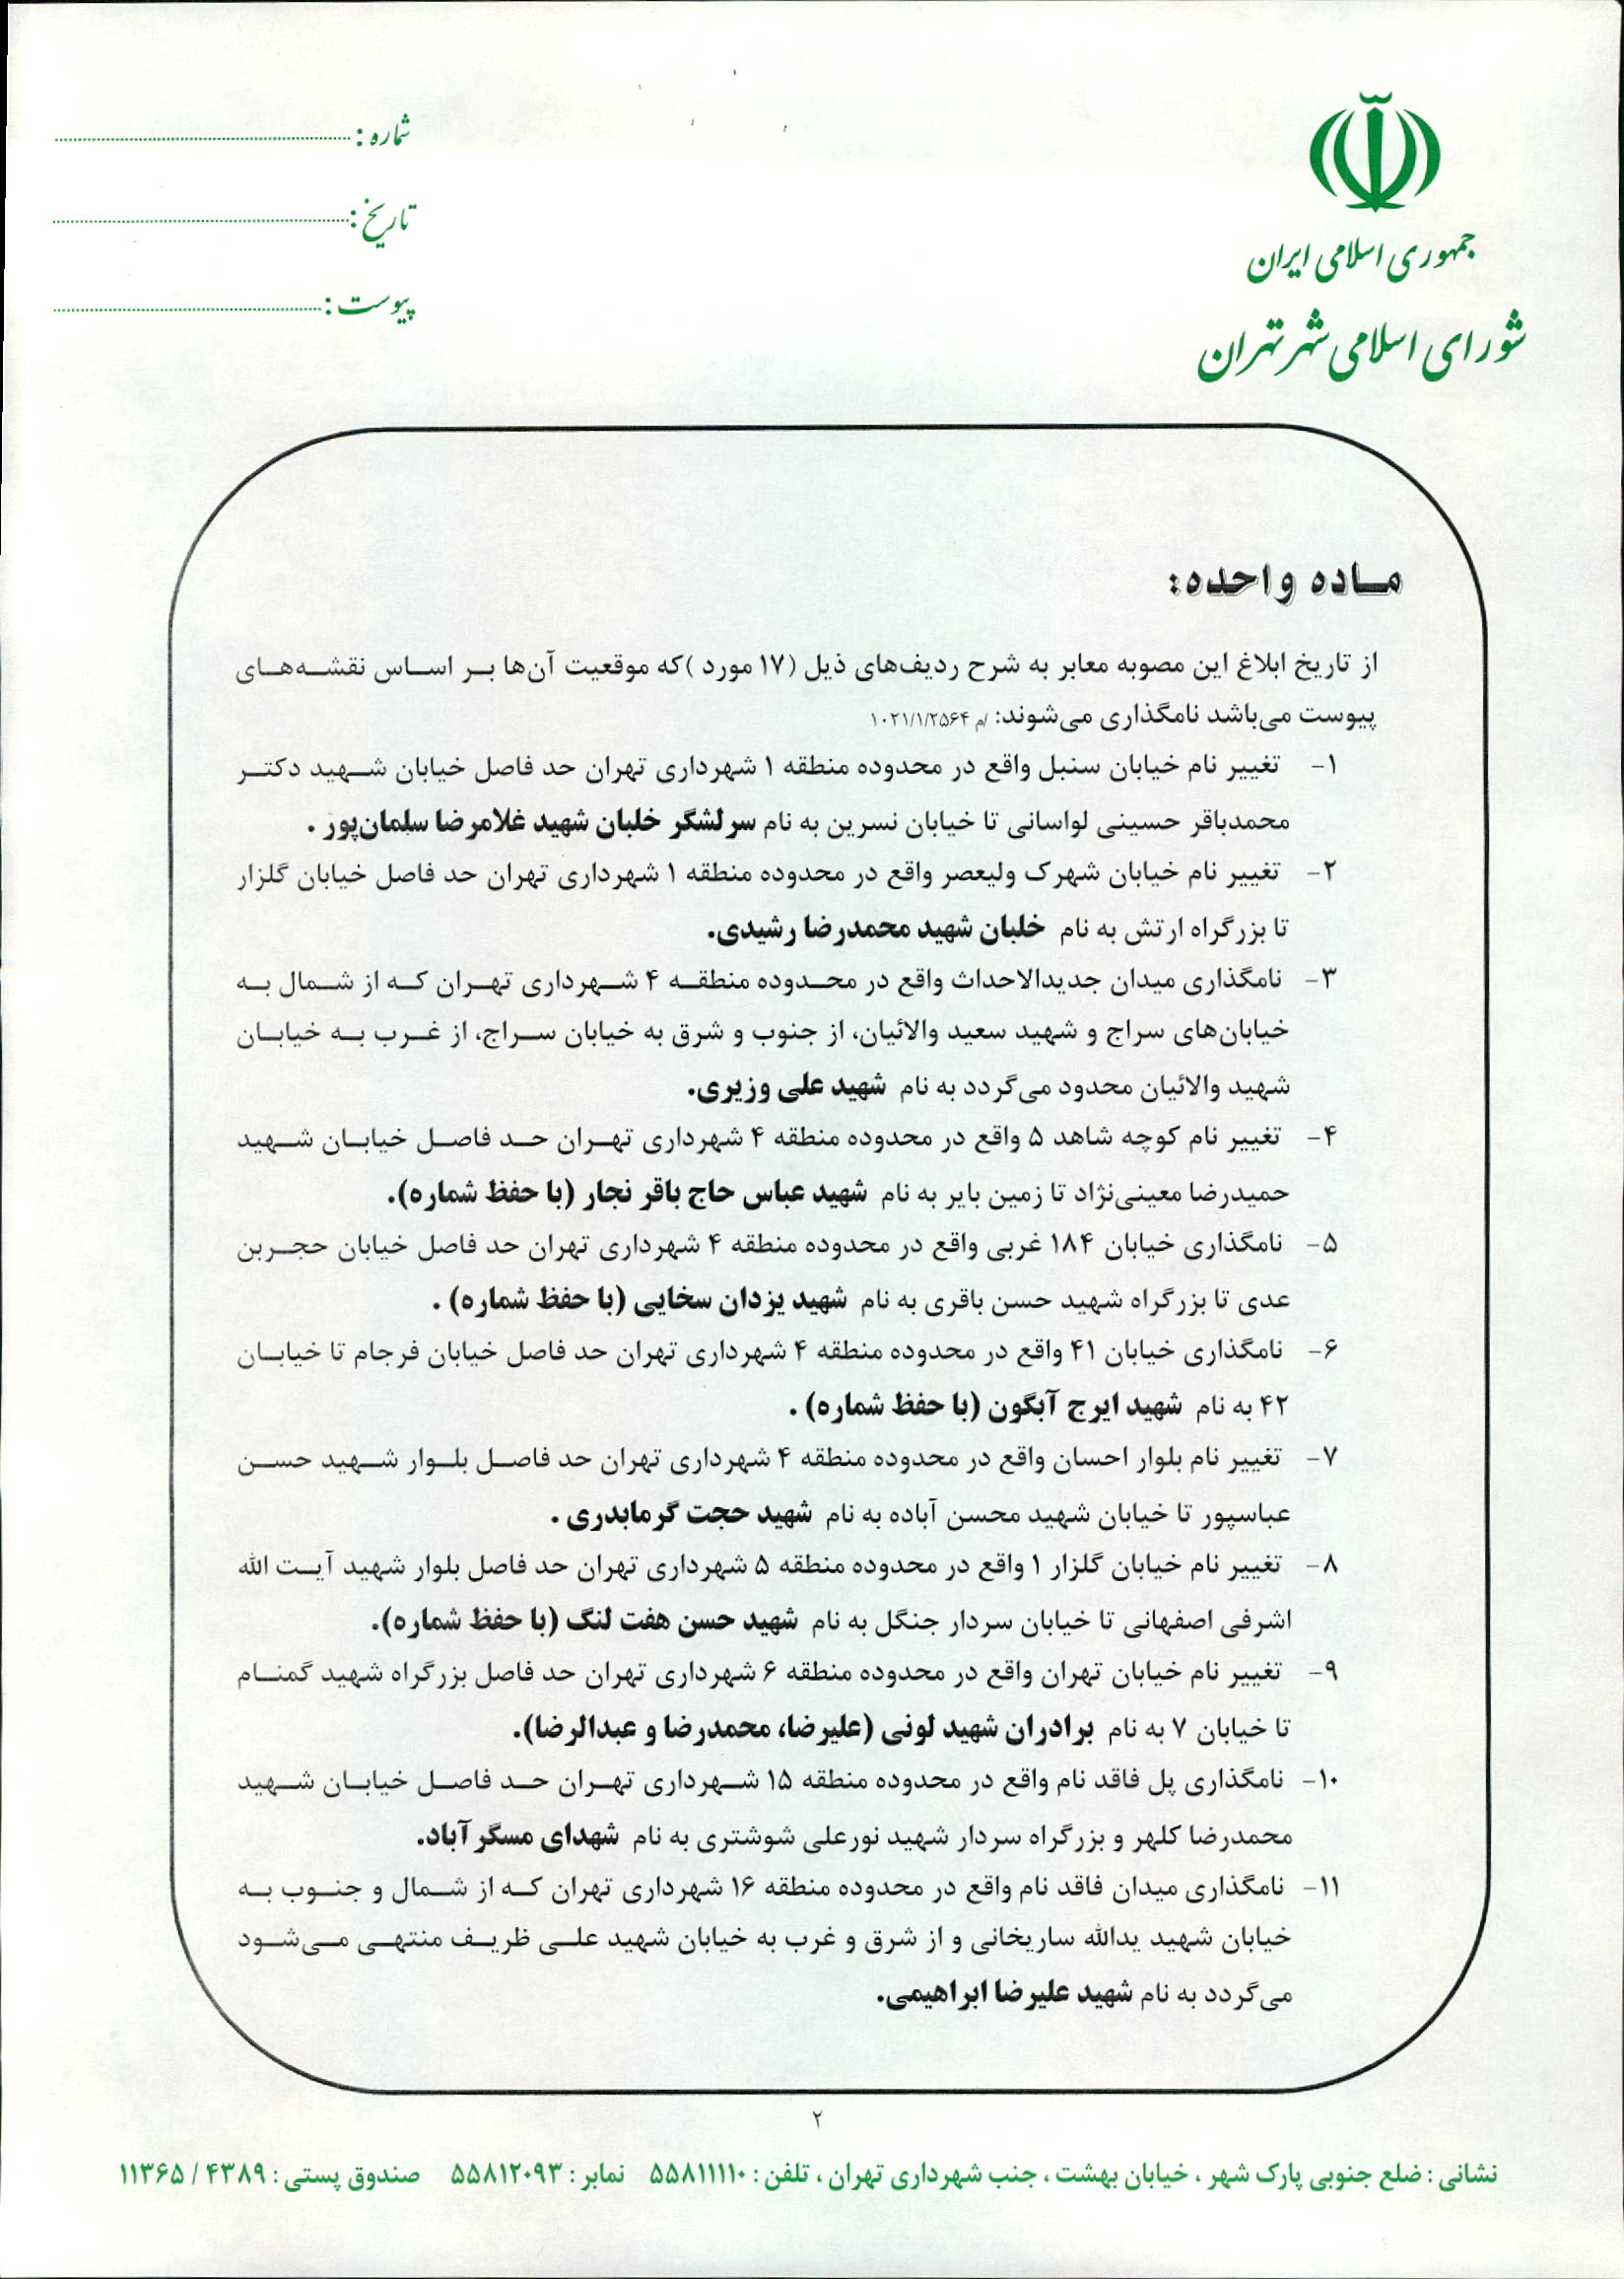 جمهوری اسلامی ایران
شورای اسلامی شهر تهران
شماره :
تاریخ:
پیوست :
مـاده واحده:
از تاریخ ابلاغ این مصوبه معابر به شرح ردیف‌های ذیل (۱۷ مورد )که موقعیت آن‌ها بـر اسـاس نقشـه‌هـای
پیوست می‌باشد نامگذاری می‌شوند: /م ۱۰۲۱/۱/۲۵۶۴
۱- تغییر نام خیابان سنبل واقع در محدوده منطقه ۱ شهرداری تهران حد فاصل خیابان شـهید دکتـر
محمدباقر حسینی لواسانی تا خیابان نسرین به نام سرلشگر خلبان شهید غلامرضا سلمان‌پور .
۲- تغییر نام خیابان شهرک ولیعصر واقع در محدوده منطقه ۱ شهرداری تهران حد فاصل خیابان گلزار
تا بزرگراه ارتش به نام خلبان شهید محمدرضا رشیدی.
۳- نامگذاری میدان جدیدالاحداث واقع در محـدوده منطقـه ۴ شـهرداری تهـران کـه از شـمال بـه
خیابان‌های سراج و شهید سعید والائیان، از جنوب و شرق به خیابان سـراج، از غـرب بـه خیابـان
شهید والائیان محدود می‌گردد به نام شهید علی وزیری.
۴- تغییر نام کوچه شاهد ۵ واقع در محدوده منطقه ۴ شهرداری تهـران حـد فاصـل خیابـان شـهید
حمیدرضا معینی‌نژاد تا زمین بایر به نام شهید عباس حاج باقر نجار (با حفظ شماره).
۵- نامگذاری خیابان ۱۸۴ غربی واقع در محدوده منطقه ۴ شهرداری تهران حد فاصل خیابان حجـربن
عدی تا بزرگراه شهید حسن باقری به نام شهید یزدان سخایی (با حفظ شماره) .
۶- نامگذاری خیابان ۴۱ واقع در محدوده منطقه ۴ شهرداری تهران حد فاصل خیابان فرجام تا خیابـان
۴۲ به نام شهید ایرج آبگون (با حفظ شماره) .
۷- تغییر نام بلوار احسان واقع در محدوده منطقه ۴ شهرداری تهران حد فاصـل بلـوار شـهید حسـن
عباسپور تا خیابان شهید محسن آباده به نام شهید حجت گرمابدری .
۸- تغییر نام خیابان گلزار ۱ واقع در محدوده منطقه ۵ شهرداری تهران حد فاصل بلوار شهید آیـت الله
اشرفی اصفهانی تا خیابان سردار جنگل به نام شهید حسن هفت لنگ (با حفظ شماره).
۹- تغییر نام خیابان تهران واقع در محدوده منطقه ۶ شهرداری تهران حد فاصل بزرگراه شهید گمنـام
تا خیابان ۷ به نام برادران شهید لونی (علیرضا، محمدرضا و عبدالرضا).
۱۰- نامگذاری پل فاقد نام واقع در محدوده منطقه ۱۵ شـهرداری تهـران حـد فاصـل خیابـان شـهید
محمدرضا کلهر و بزرگراه سردار شهید نورعلی شوشتری به نام شهدای مسگر آباد.
۱۱- نامگذاری میدان فاقد نام واقع در محدوده منطقه ۱۶ شهرداری تهران کـه از شـمال و جنـوب بـه
خیابان شهید یدالله ساریخانی و از شرق و غرب به خیابان شهید علـی ظریـف منتهـی مـی‌شـود
می‌گردد به نام شهید علیرضا ابراهیمی.
۲
نشانی : ضلع جنوبی پارک شهر ، خیابان بهشت ، جنب شهرداری تهران ، تلفن : ۵۵۸۱۱۱۱۰ نمابر : ۵۵۸۱۲۰۹۳ صندوق پستی : ۴۳۸۹ / ۱۱۳۶۵